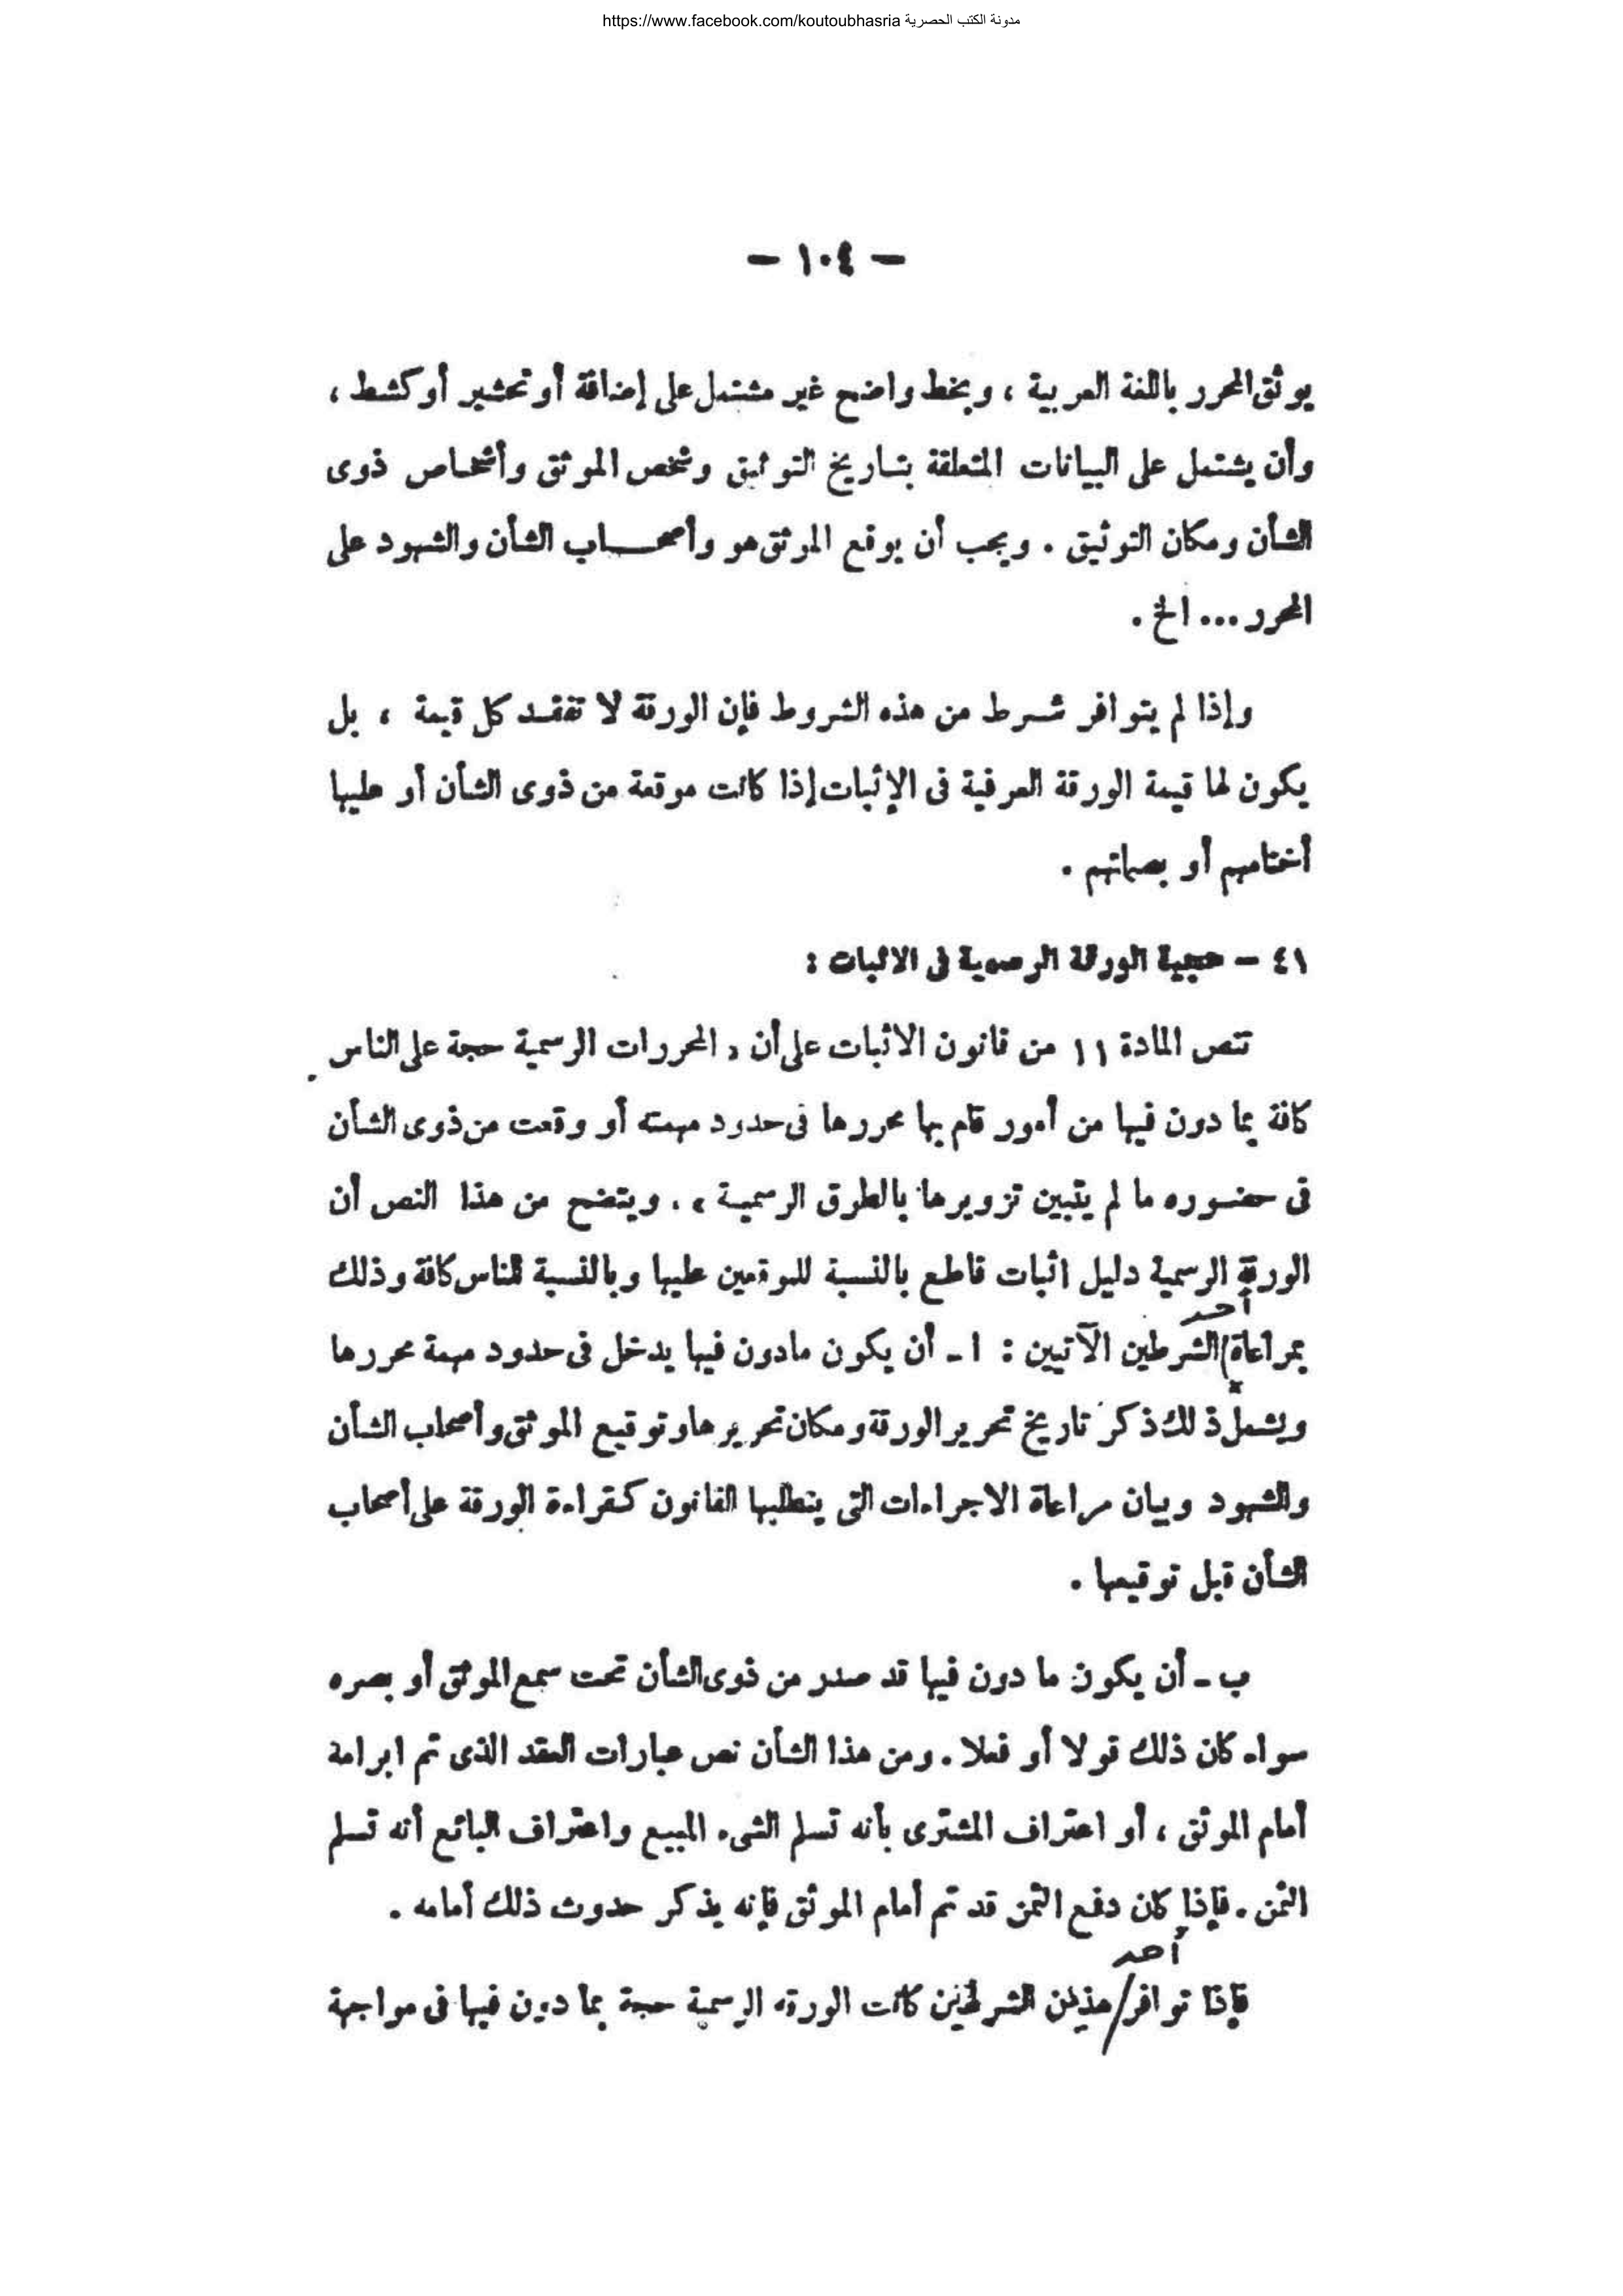 مدونة الكتب الحصرية https://www.facebook.com/koutoubhasria
— ١٠٤ —
يوثق المحرر باللغة العربية ، وبخط واضح غير مشتمل على إضافة أو تحشير أو كشط ،
وأن يشتمل على البيانات المتعلقة بتاريخ التوثيق وشخص الموثق وأشخاص ذوى
الشأن ومكان التوثيق . ويجب أن يوقع الموثق هو وأصحاب الشأن والشهود على
المحرر ... الخ .
وإذا لم يتوافر شرط من هذه الشروط فإن الورقة لا تفقد كل قيمة ، بل
يكون لها قيمة الورقة العرفية فى الإثبات إذا كانت موقعة من ذوى الشأن أو عليها
أختامهم أو بصماتهم .
٤١ — حجية الورقة الرسمية فى الاثبات :
تنص المادة ١١ من قانون الاثبات على أن « المحررات الرسمية حجة على الناس
كافة بما دون فيها من أمور قام بها محررها فى حدود مهمته أو وقعت من ذوى الشأن
فى حضوره ما لم يتبين تزويرها بالطرق الرسمية » . ويتضح من هذا النص أن
الورقة الرسمية دليل اثبات قاطع بالنسبة للموقعين عليها وبالنسبة للناس كافة وذلك
أحد
بمراعاة / الشرطين الآتيين : ا - أن يكون مادون فيها يدخل فى حدود مهمة محررها
ويشمل ذلك ذكر تاريخ تحرير الورقة ومكان تحريرها وتوقيع الموثق وأصحاب الشأن
والشهود وبيان مراعاة الاجراءات التى يتطلبها القانون كقراءة الورقة على أصحاب
الشأن قبل توقيعها .
ب - أن يكون ما دون فيها قد صدر من ذوى الشأن تحت سمع الموثق أو بصره
سواء كان ذلك قولا أو فعلا . ومن هذا الشأن نص عبارات العقد الذى تم ابرامة
أمام الموثق ، أو اعتراف المشترى بأنه تسلم الشىء المبيع واعتراف البائع أنه تسلم
الثمن . فإذا كان دفع الثمن قد تم أمام الموثق فإنه يذكر حدوث ذلك أمامه .
أحد
فإذا توافر / هذين الشرطين كانت الورقة الرسمية حجة بما دون فيها فى مواجهة